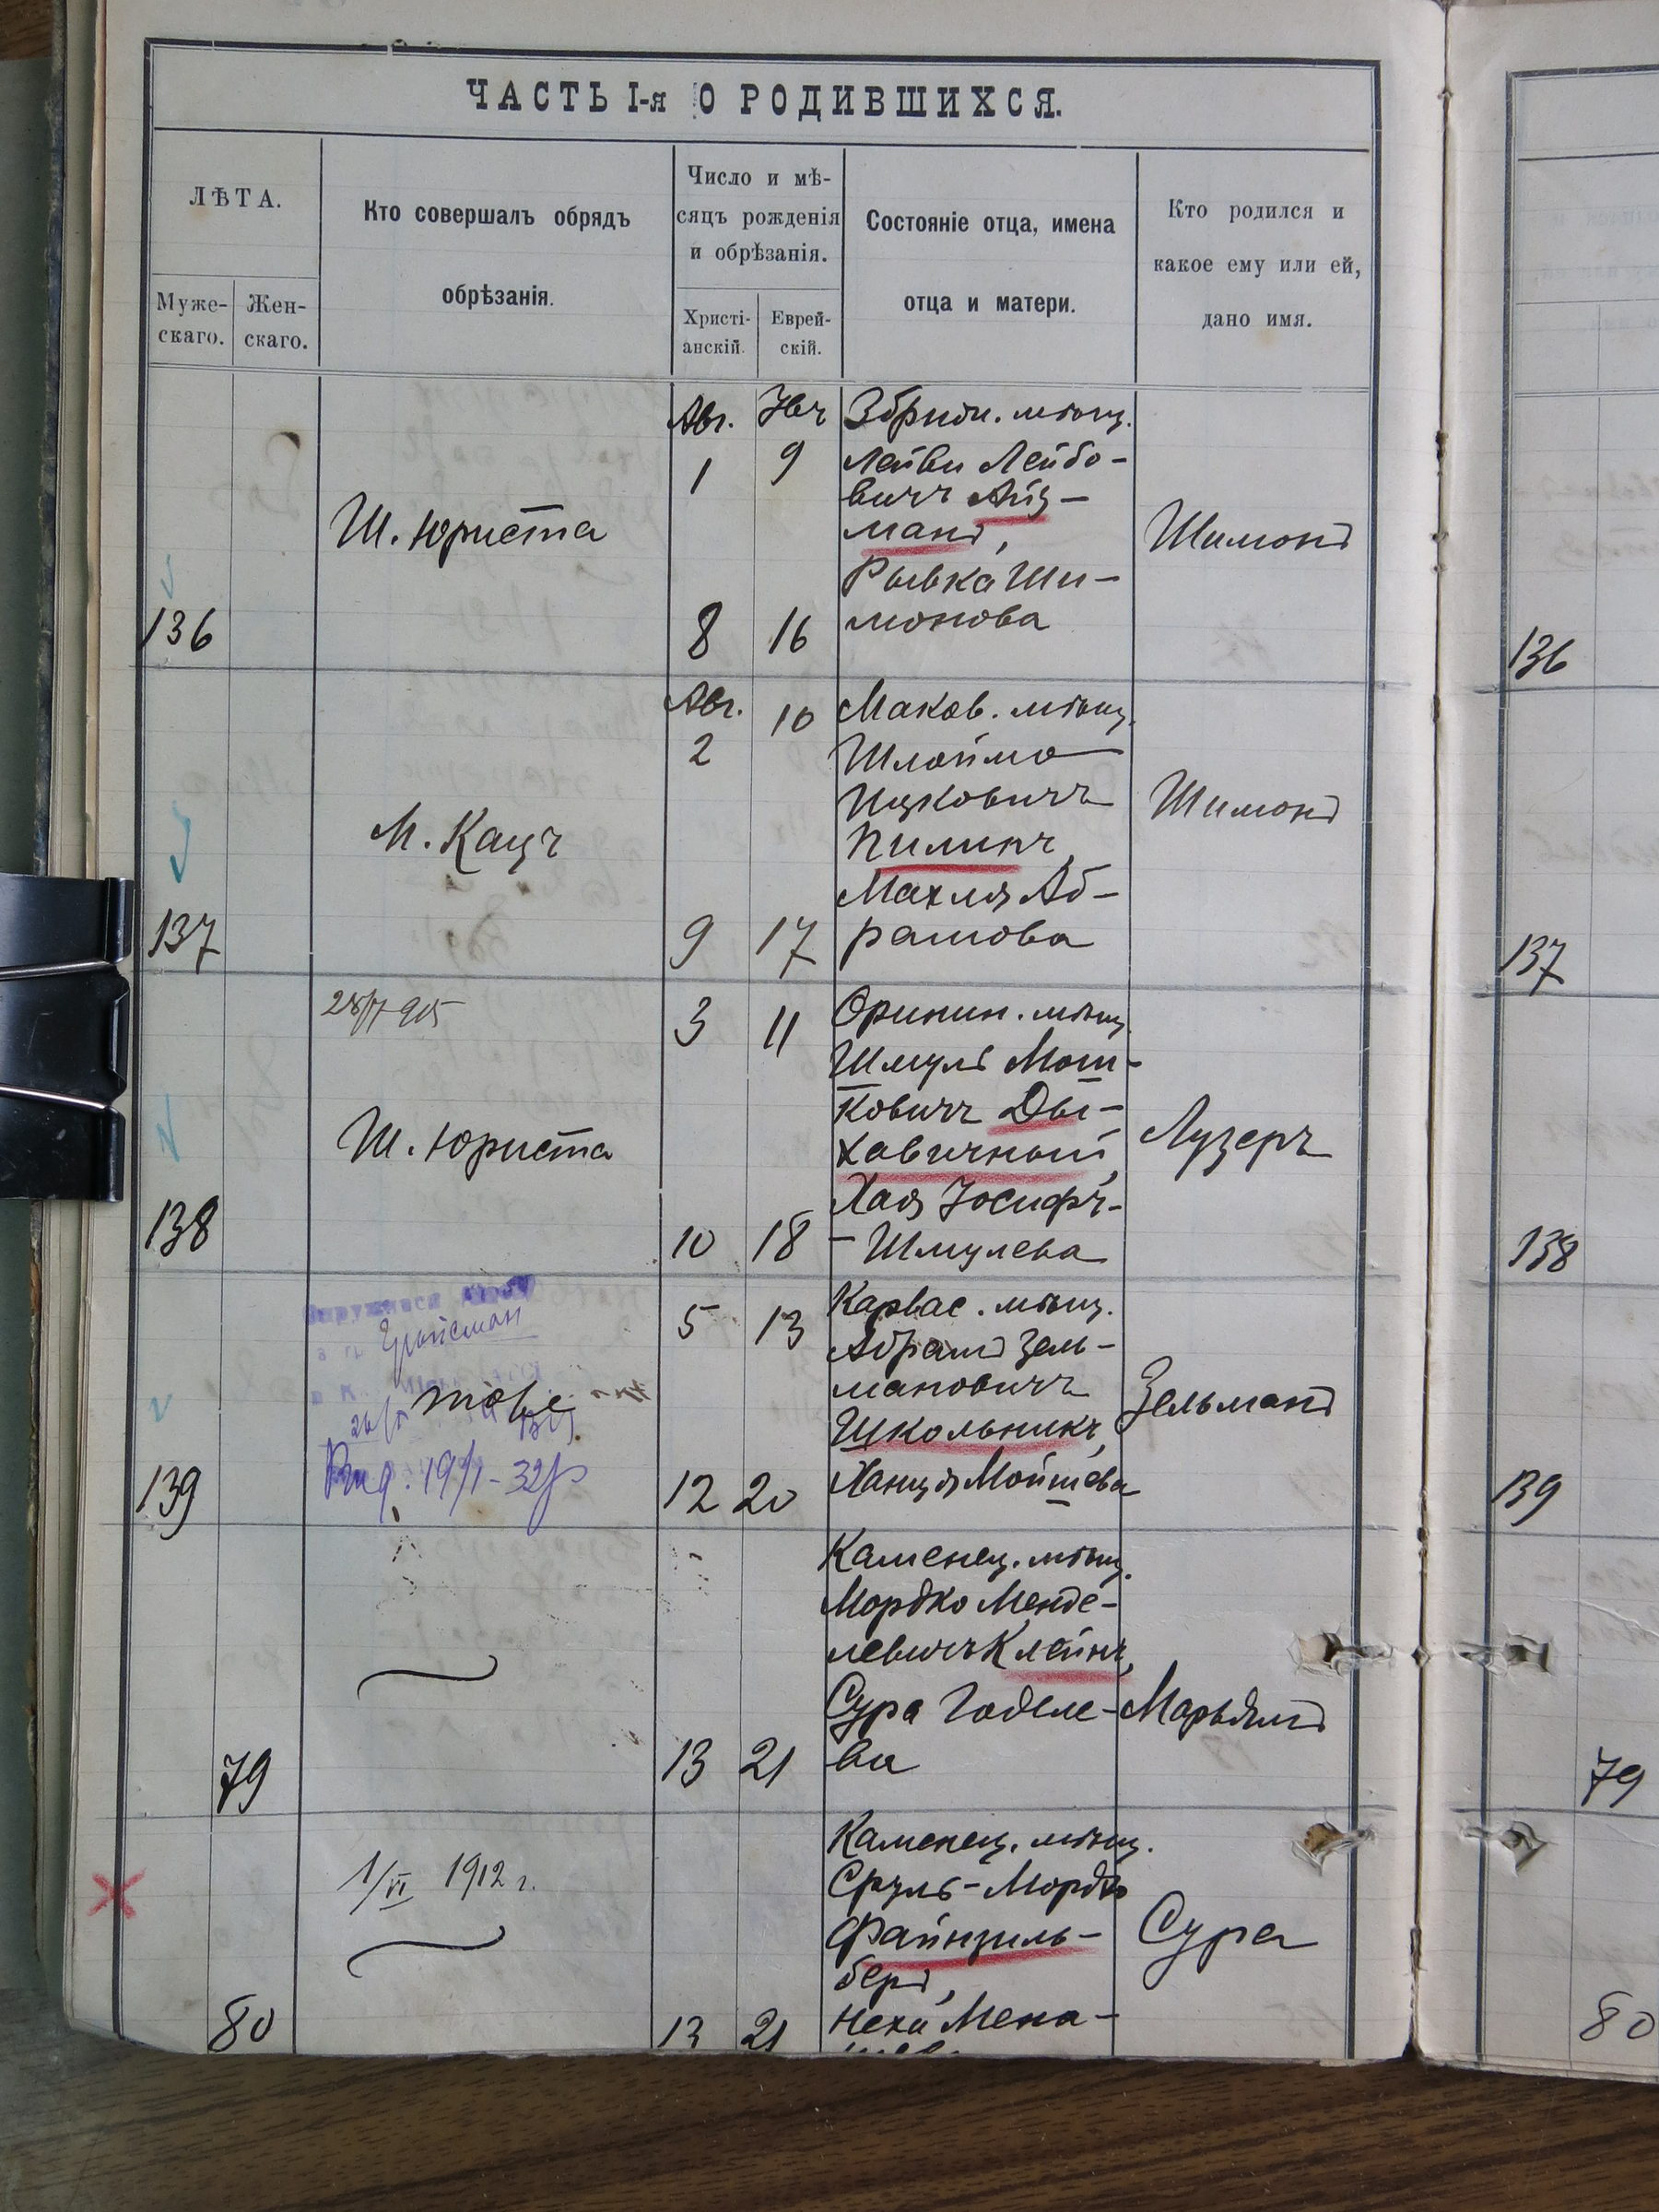 ЧАСТЬ I-я О РОДИВШИХСЯ.
ЛѢТА.
Муже-
скаго.
Жен-
скаго.
Кто совершалъ обрядъ
обрѣзанія.
Число и мѣ-
сяцъ рожденія
и обрѣзанія.
Христі-
анскій.
Еврей-
скій.
Состояніе отца, имена
отца и матери.
Кто родился и
какое ему или ей,
дано имя.
136
Ш. Юриста
Авг.
1
9
8
16
мѣщ.
Лейви Лейбо-
вичъ Айз-
манъ,
Рывка Ши-
монова
Шимонъ
136
137
М. Кацъ
Авг. 10
2
9
17
Маков. мѣщ.
Шлойма
Ицковичъ
Пилинъ,
Махля Аб-
рамова
Шимонъ
137
138
Ш. Юриста
3
11
10
18
Оринин. мѣщ.
Шмуль Мош-
ковичъ Ды-
хавичный,
Хая Іосифъ-
-Шмулева
Лузеръ
138
139
тоже
5
13
12
20
Карвас. мѣщ.
Абрамъ Зель-
мановичъ
Школьникъ,
Ханця Мойшева
Зельманъ
139
79
13
21
Каменец. мѣщ.
Мордко Менде-
левичъ Клейнъ,
Сура Годеле-
ва
Марьямъ
79
80
1/VI 1912 г.
13
21
Каменец. мѣщ.
Сруль-Мордко
Файнзиль-
беръ,
Неха Мена-
Сура
80